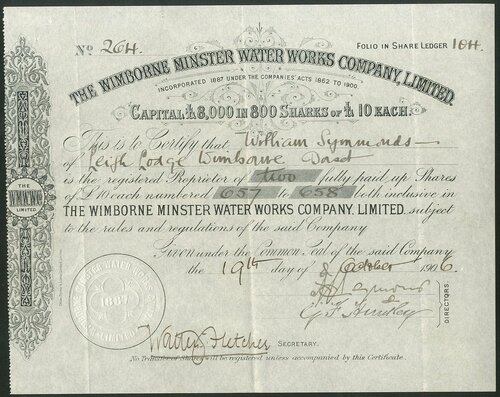 No. 264.
FOLIO IN SHARE LEDGER 104
THE WIMBORNE MINSTER WATER WORKS COMPANY, LIMITED.
INCORPORATED 1887 UNDER THE COMPANIES' ACTS 1862 TO 1900.
CAPITAL £8,000 IN 800 SHARES OF £10 EACH.
This is to Certify that William Symonds
of Leigh Lodge Wimborne Dorset
is the registered Proprietor of two fully paid up Shares
of £10 each numbered 657 to 658 both inclusive in
THE WIMBORNE MINSTER WATER WORKS COMPANY, LIMITED, subject
to the rules and regulations of the said Company
Given under the Common Seal of the said Company
the 19th day of October 1906.
DIRECTORS.
THE
W.M.W.W.C
LIMITED.
1887
Walter Fletcher SECRETARY.
No Transfer of Shares will be registered unless accompanied by this Certificate.